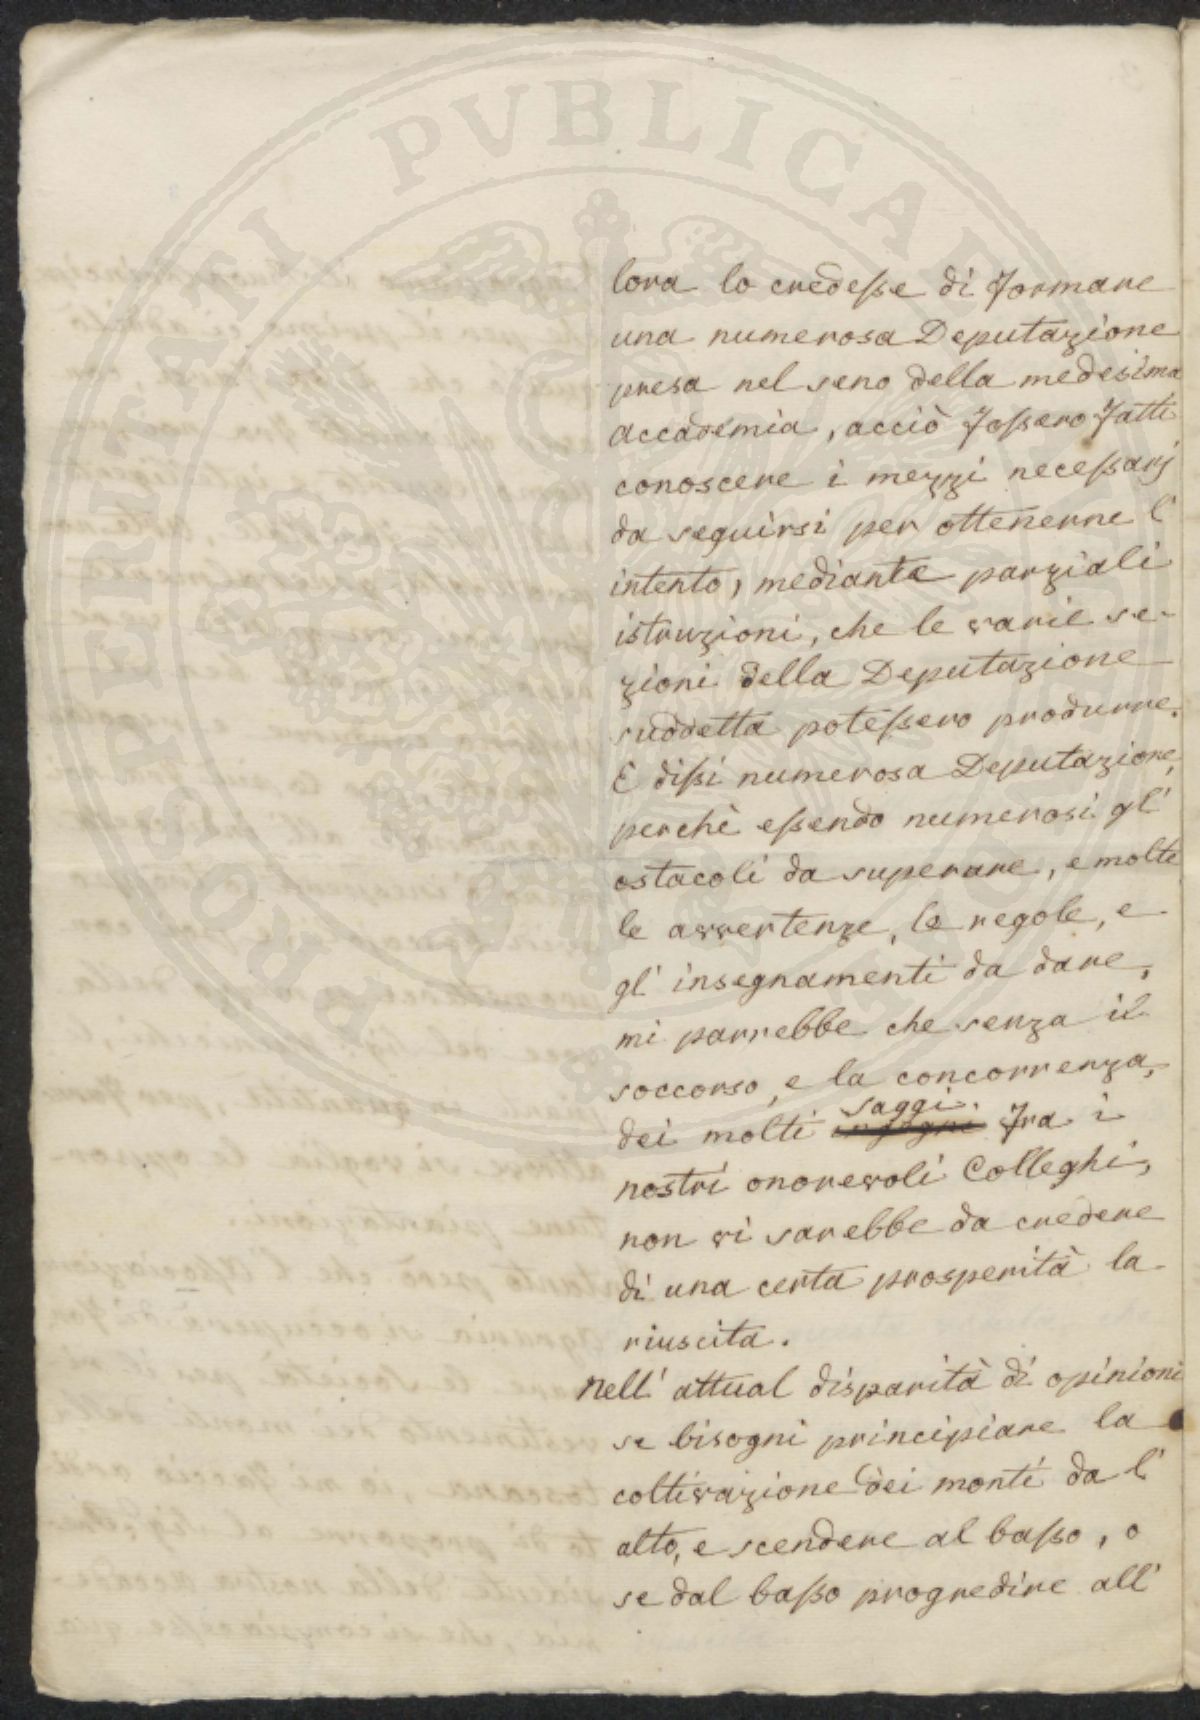 PROSPERITATI PVBLICAE AVGENDAE
lora lo credesse di formare
una numerosa Deputazione
presa nel seno della medesima
accademia, acciò fossero fatti
conoscere i mezzi necessarj
da seguirsi per ottenerne l'
intento, mediante parziali
istruzioni, che le varie se-
zioni della Deputazione
suddetta potessero produrre.
E dissi numerosa Deputazione,
perchè essendo numerosi gl'
ostacoli da superare, e molte
le avvertenze, le regole, e
gl' insegnamenti da dare,
mi parrebbe che senza il
soccorso, e la concorrenza,
dei molti saggi fra i
nostri onorevoli Colleghi,
non vi sarebbe da credere
di una certa prosperità la
riuscita.
Nell' attual disparità di opinioni
se bisogni principiare la
coltivazione dei monti da l'
alto, e scendere al basso, o
se dal basso progredire all'